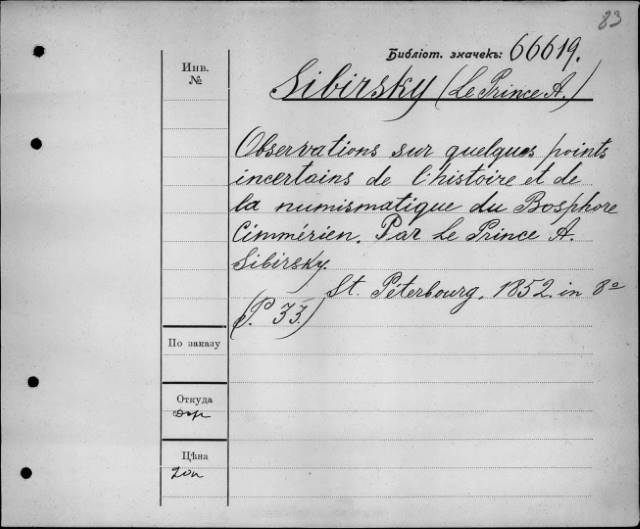 83
Библіот. значекъ: 66619.
Инв.
№
Sibirsky (Le Prince A.)
Observations sur quelques points
incertains de l'histoire et de
la numismatique du Bosphore
Cimmérien. Par Le Prince A.
Sibirsky.
St. Péterbourg, 1852. in 8º
(P. 33.)
По заказу
Откуда
дар
Цѣна